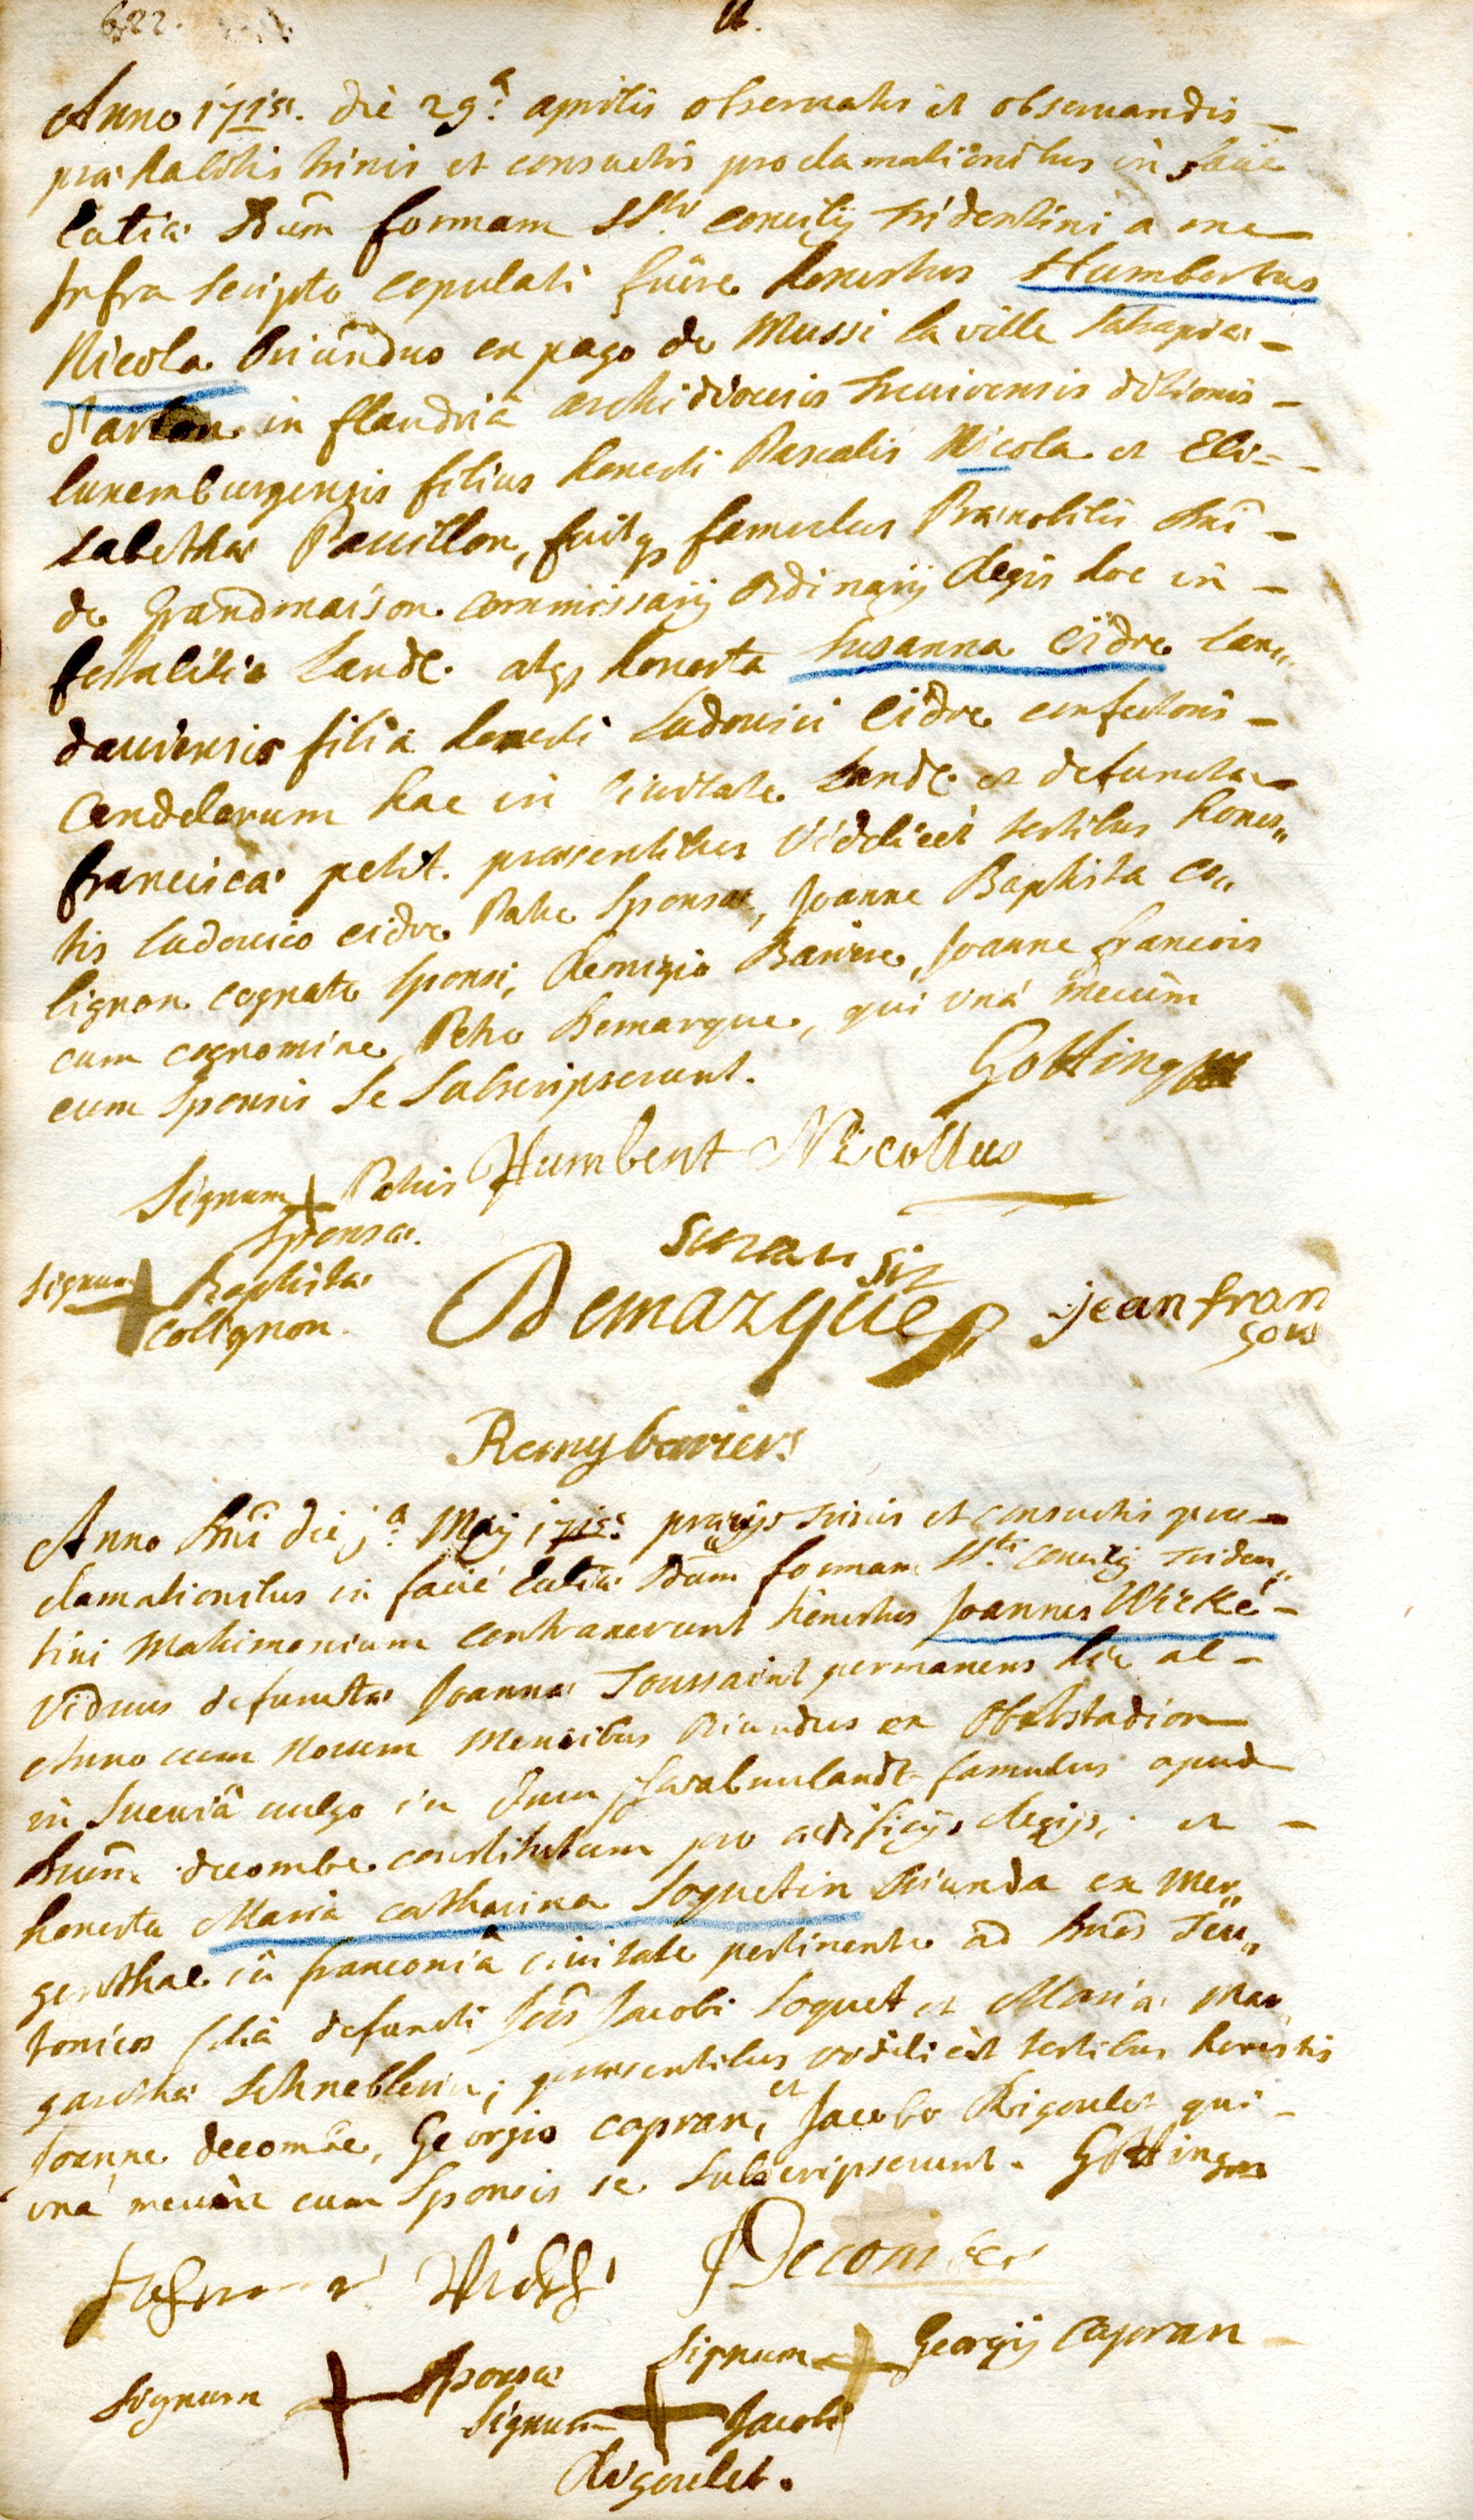 622.
Anno 1715. die 29.a aprilis observatis et observandis
prae habitis trinis et consuetis proclamationibus in facie
Eccliae Sdum formam SSti. concilij Tridentini a me
Infra scripto copulati fuere honestus Humbertus
Nicola oriundus ex pago de Mussi la ville
d'arlon in flandria archidiocesis Trevirensis ditionis
luxemburgensis filius honesti Pascalis Nicola et Eli=
sabethae Pavillon, fuitqs famulus Praenobilis Dni
de Grandmaison commissarij ordinarij Regis hoc in
Landc. atqs honesta Susanna Cidre Lan"
daviensis filia honesti Ludovici Cidre confectoris
Candelarum hac in civitate Landc. et defunctae
franciscae petit. praesentibus videlicet testibus hones"
tis Ludovico cidre Patre Sponsae, Joanne Baptista co"
lignon cognato sponsi, Remigio Barier, Joanne francois
cum cognomine, Petro Demarque, qui unà mecum
cum Sponsis se subscripserunt. Gotting
Signum + Patris Humbert Nicollus
Sponsae.
susan
sit
Signum + Baptistae
Collignon.
Demarque
jean fran
sois
Remy bariers
Anno Dni die j.a Maij 1715. praevijs trinis et consuetis pro
clamationibus in facie Eccliae Sdum formam SSti. concilij Triden"
tini Matrimonium contraxerunt honestus Joannes Wicke
Viduus defunctae Joannae Toussaint permanens hic ab
Anno cum novem Mensibus oriundus ex Oberstadion
in Sueviâ vulgo in dem schwabenlandt famulus apud
Dnum decombe constitutum pro aedificijs Regijs, et
honesta Maria catharina Soquetin oriunda ex Mer"
genthal in franconiâ civitate pertinente ad Dnos Teu"
tonicos filia defuncti Jacobi Soquet et Mariae Mar
garethae Schneblerin; praesentibus videlicet testibus honestis
Joanne decombe, Georgio capran, et Jacobo Rigoulet qui
unà mecum cum Sponsis se subscripserunt. Gotting
Decombes
Signum + Sponsae
Signum + Georgij Capran
Signum + Jacobi
Rigoulet.